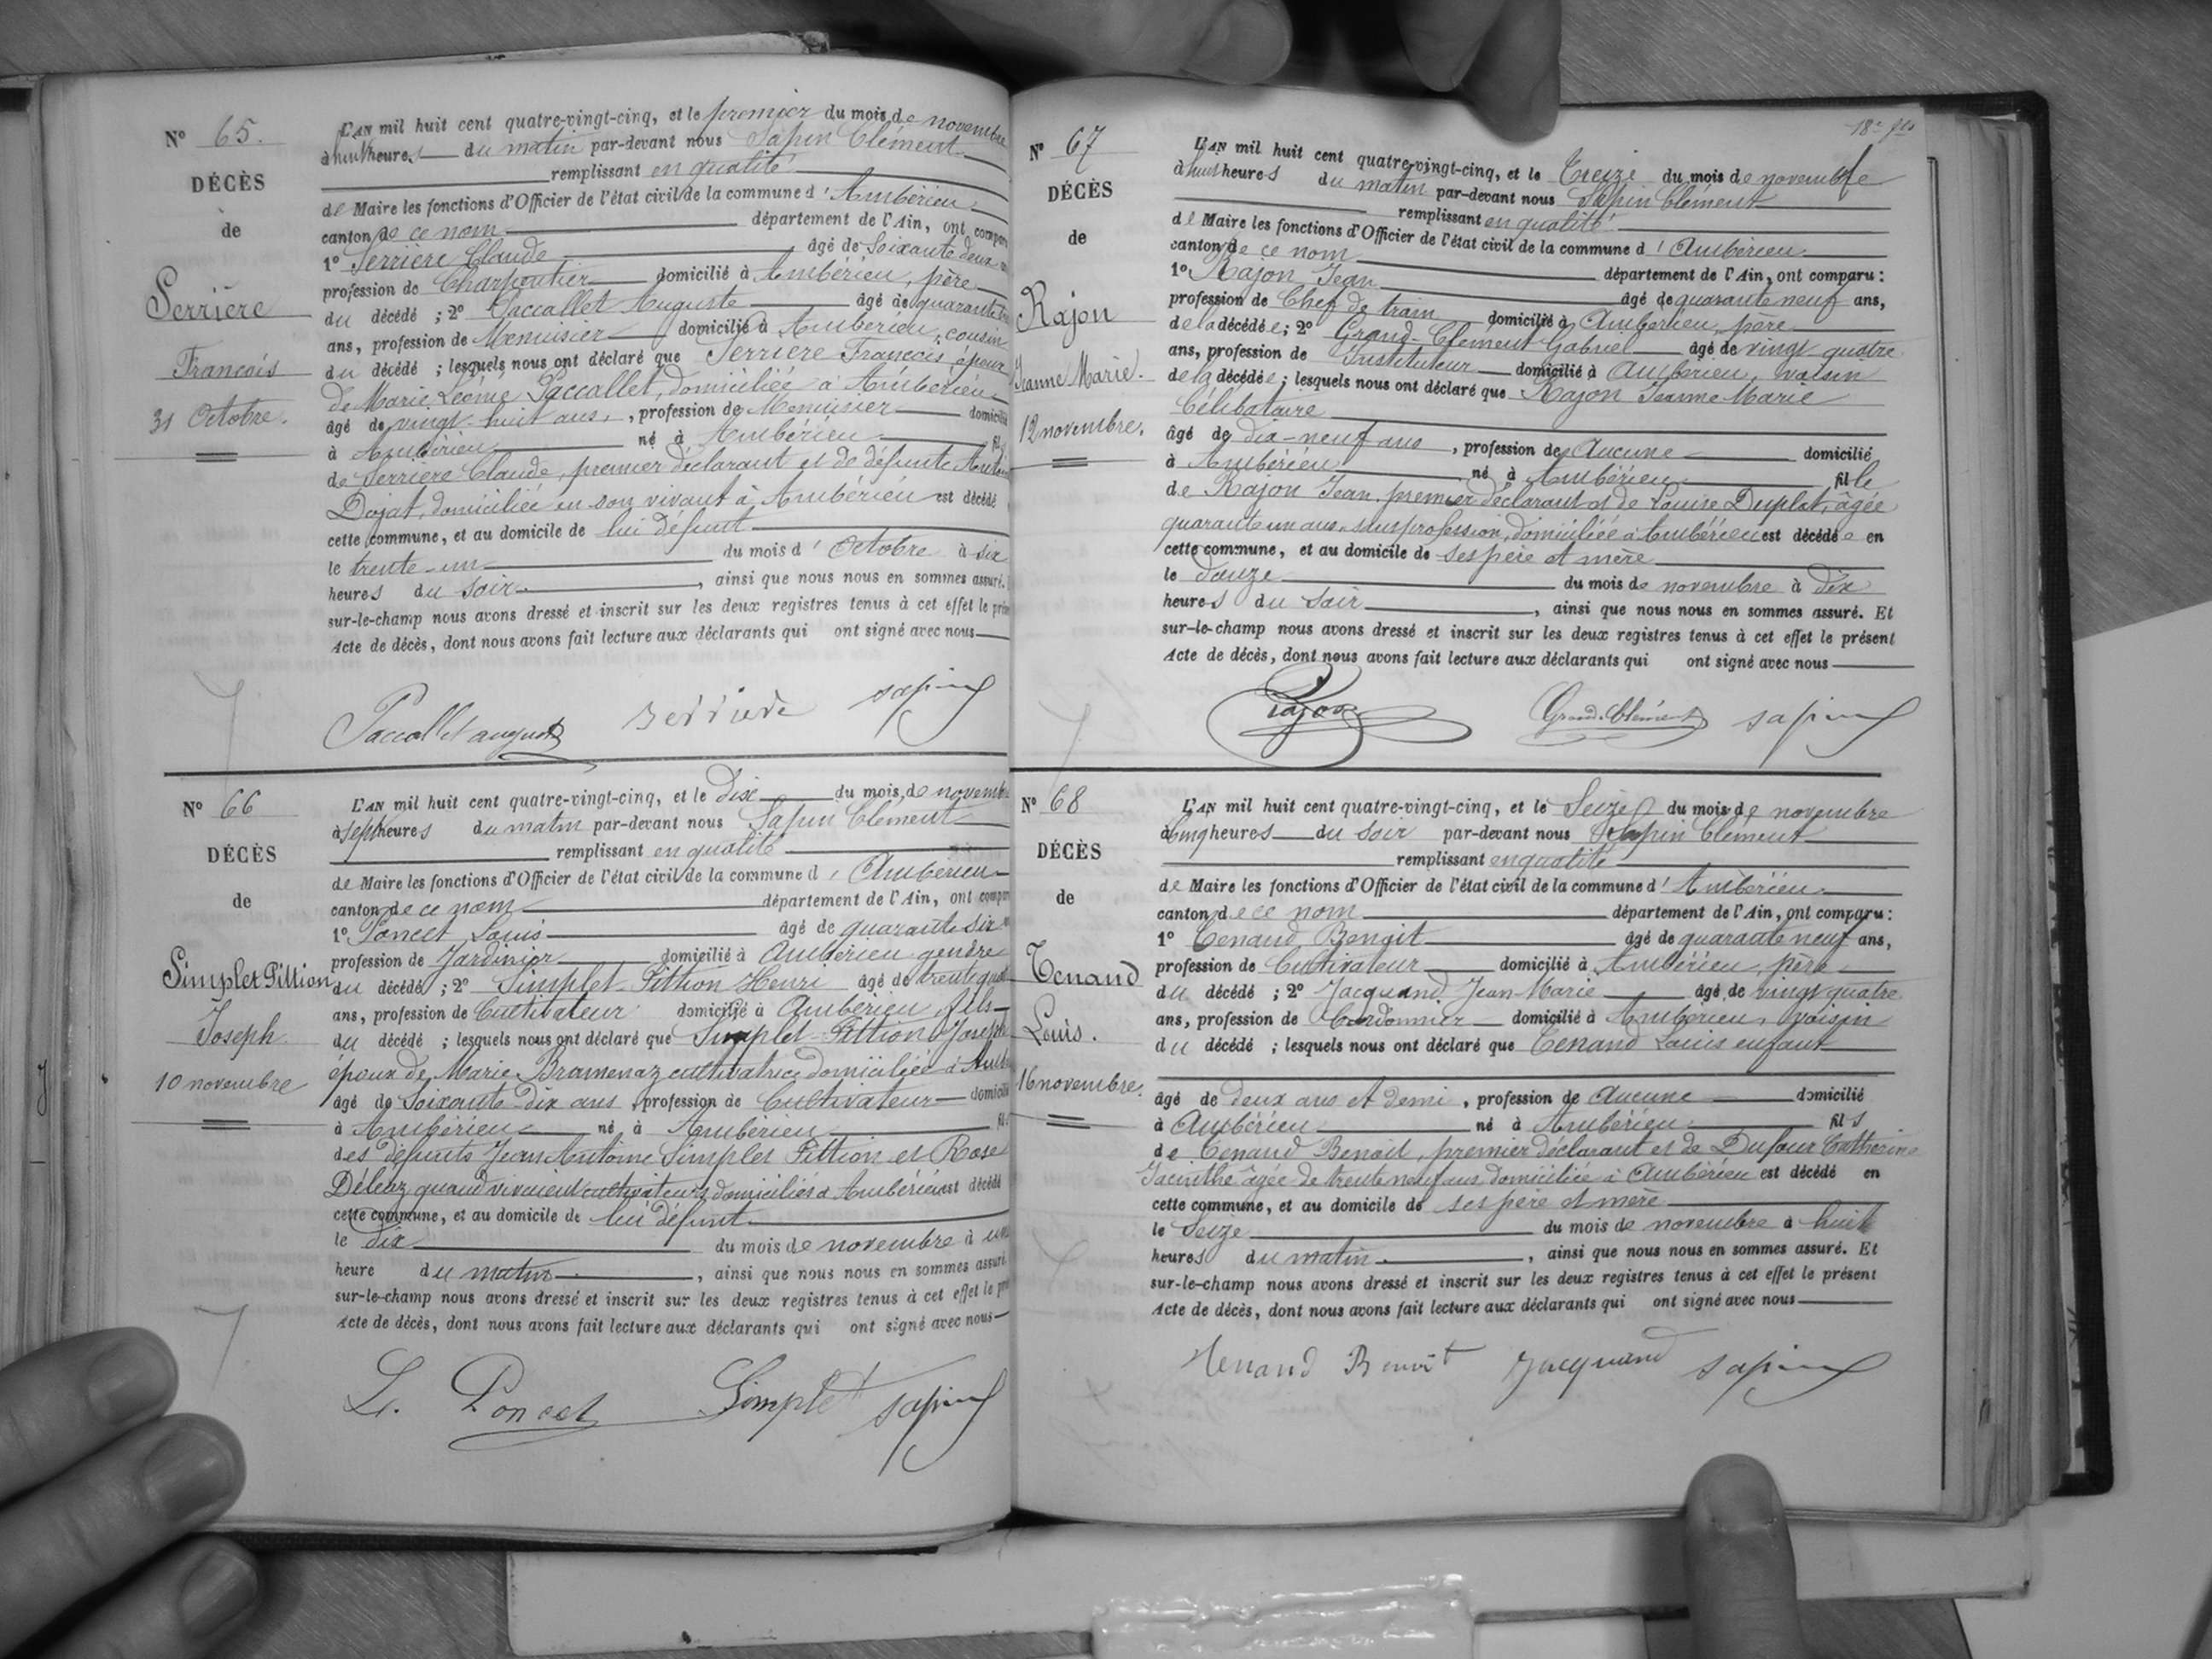 N° 65.
DÉCÈS
de
Serrière
François
31 Octobre.
L'AN mil huit cent quatre-vingt-cinq, et le premier du mois de novembre
à huit heures du matin par-devant nous Sapin Clément
remplissant en qualité
de Maire les fonctions d'Officier de l'état civil de la commune d'Ambérieu
canton de ce nom département de l'Ain, ont
1° Serrière Claude âgé de Soixante deux
profession de Charpentier domicilié à Ambérieu, père
du décédé ; 2° Paccallet Auguste âgé de quarante
ans, profession de Menuisier domicilié à Ambérieu, cousin
du décédé ; lesquels nous ont déclaré que Serrière François époux
de Marie Léonie Paccallet, domiciliée à Ambérieu
âgé de vingt-huit ans, profession de Menuisier
à Ambérieu né à Ambérieu
de Serrière Claude, premier déclarant et de défunte
Dujat, domiciliée en son vivant à Ambérieu est décédé
cette commune, et au domicile de lui défunt
le trente-un du mois d'Octobre à six
heures du soir, ainsi que nous nous en sommes assuré.
sur-le-champ nous avons dressé et inscrit sur les deux registres tenus à cet effet le
Acte de décès, dont nous avons fait lecture aux déclarants qui ont signé avec nous
Paccallet auguste Serriere Sapin
N° 66
DÉCÈS
de
Simplet Pittion
Joseph
10 novembre
L'AN mil huit cent quatre-vingt-cinq, et le Dix du mois de novembre
à sept heures du matin par-devant nous Sapin Clément
remplissant en qualité
de Maire les fonctions d'Officier de l'état civil de la commune d'Ambérieu
canton de ce nom département de l'Ain, ont
1° Poncet Louis âgé de quarante six
profession de Jardinier domicilié à Ambérieu gendre
du décédé ; 2° Simplet-Pittion Henri âgé de trente
ans, profession de Cultivateur domicilié à Ambérieu, fils
du décédé ; lesquels nous ont déclaré que Simplet-Pittion Joseph
époux de Marie Bramenaz cultivatrice domiciliée à
âgé de Soixante-dix ans, profession de Cultivateur
à Ambérieu né à Ambérieu
des défunts Jean Antoine Simplet Pittion et Rose
Déleaz quand vivaient cultivateurs domiciliés à Ambérieu est décédé
cette commune, et au domicile de lui défunt
le dix du mois de novembre à une
heure du matin, ainsi que nous nous en sommes assuré
sur-le-champ nous avons dressé et inscrit sur les deux registres tenus à cet effet le
Acte de décès, dont nous avons fait lecture aux déclarants qui ont signé avec nous
L. Poncet Simplet Sapin
18e
N° 67
DÉCÈS
de
Rajon
Jeanne Marie.
12 novembre.
L'AN mil huit cent quatre-vingt-cinq, et le Treize du mois de novembre
à huit heures du matin par-devant nous Sapin Clément
remplissant en qualité
de Maire les fonctions d'Officier de l'état civil de la commune d'Ambérieu
canton de ce nom département de l'Ain, ont comparu :
1° Rajon Jean âgé de quarante neuf ans,
profession de Chef de train domicilié à Ambérieu, père
de la décédée ; 2° Grand-Clément Gabriel âgé de vingt-quatre
ans, profession de Instituteur domicilié à Ambérieu, voisin
de la décédée ; lesquels nous ont déclaré que Rajon Jeanne Marie
Célibataire
âgé de dix-neuf ans, profession de Aucune domicilié
à Ambérieu né à Ambérieu fille
de Rajon Jean premier déclarant et de Louise Duplat, âgée
quarante un ans, sans profession, domiciliée à Ambérieu est décédée en
cette commune, et au domicile de ses père et mère
le douze du mois de novembre à dix
heures du soir, ainsi que nous nous en sommes assuré. Et
sur-le-champ nous avons dressé et inscrit sur les deux registres tenus à cet effet le présent
Acte de décès, dont nous avons fait lecture aux déclarants qui ont signé avec nous
Rajon Grand-Clément Sapin
N° 68
DÉCÈS
de
Tenand
Louis.
16 novembre.
L'AN mil huit cent quatre-vingt-cinq, et le Seize du mois de novembre
à cinq heures du soir par-devant nous Sapin Clément
remplissant en qualité
de Maire les fonctions d'Officier de l'état civil de la commune d'Ambérieu
canton de ce nom département de l'Ain, ont comparu :
1° Tenand Benoit âgé de quarante neuf ans,
profession de Cultivateur domicilié à Ambérieu, père
du décédé ; 2° Jacquand Jean Marie âgé de vingt quatre
ans, profession de Cordonnier domicilié à Ambérieu, voisin
du décédé ; lesquels nous ont déclaré que Tenand Louis enfant
âgé de deux ans et demi, profession de Aucune domicilié
à Ambérieu né à Ambérieu fils
de Tenand Benoit, premier déclarant et de Dufour Catherine
Jacinthe âgée de trente neuf ans domiciliée à Ambérieu est décédé en
cette commune, et au domicile de ses père et mère
le Seize du mois de novembre à huit
heures du matin, ainsi que nous nous en sommes assuré. Et
sur-le-champ nous avons dressé et inscrit sur les deux registres tenus à cet effet le présent
Acte de décès, dont nous avons fait lecture aux déclarants qui ont signé avec nous
Tenand Benoit Jacquand Sapin